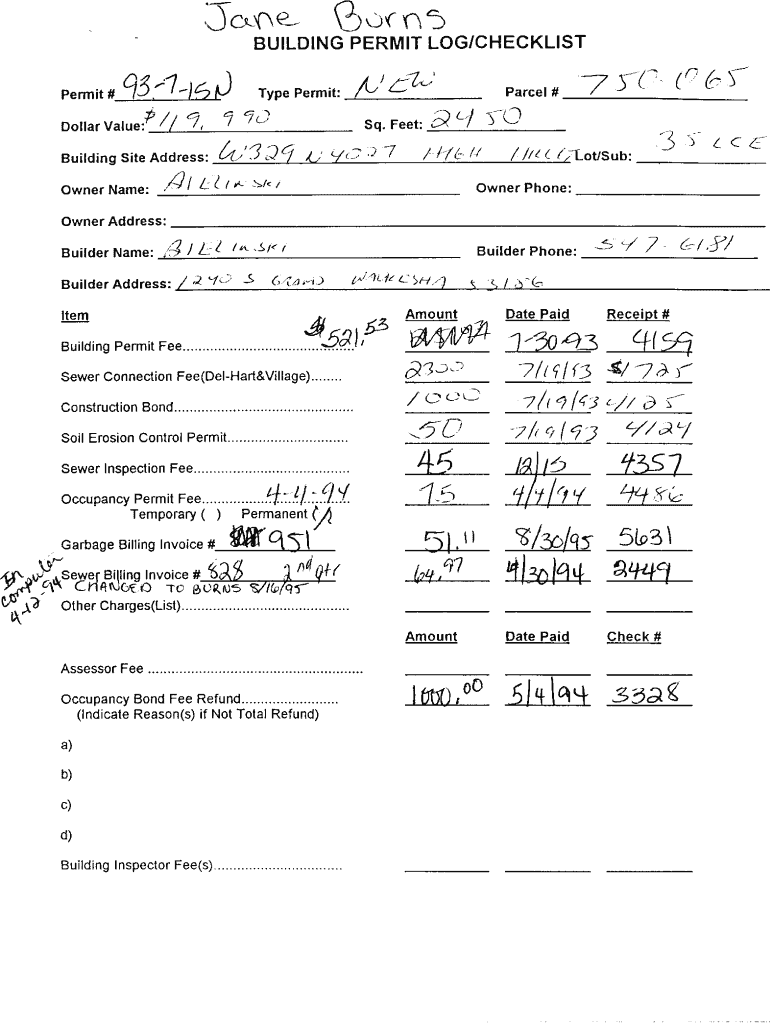 Jane Burns
BUILDING PERMIT LOG/CHECKLIST
Permit # 93-7-15N Type Permit: NEW Parcel # 750-1065
Dollar Value: $119,990 Sq. Feet: 2450
Building Site Address: W329 N4027 HIGH Lot/Sub: 35 LCE
Owner Name: Owner Phone:
Owner Address:
Builder Name: BIELINSKI Builder Phone: 547-6181
Builder Address: 1240 S GRAND WAUKESHA 53186
Item Amount Date Paid Receipt #
Building Permit Fee $521.53 7-30-93 4159
Sewer Connection Fee(Del-Hart&Village)........ 2300 7/19/93 $1725
Construction Bond 1000 7/19/93 4125
Soil Erosion Control Permit 50 7/19/93 4124
Sewer Inspection Fee 45 12/15 4357
Occupancy Permit Fee 4-4-94 75 4/4/94 4486
Temporary ( ) Permanent (/)
Garbage Billing Invoice # 951 51.11 8/30/95 5631
Sewer Billing Invoice # 828 2nd qtr 64.97 4/30/94 2449
In computer 4-12-94
CHANGED TO BURNS 8/16/95
Other Charges(List)
Amount Date Paid Check #
Assessor Fee
Occupancy Bond Fee Refund 1000.00 5/4/94 3328
(Indicate Reason(s) if Not Total Refund)
a)
b)
c)
d)
Building Inspector Fee(s)